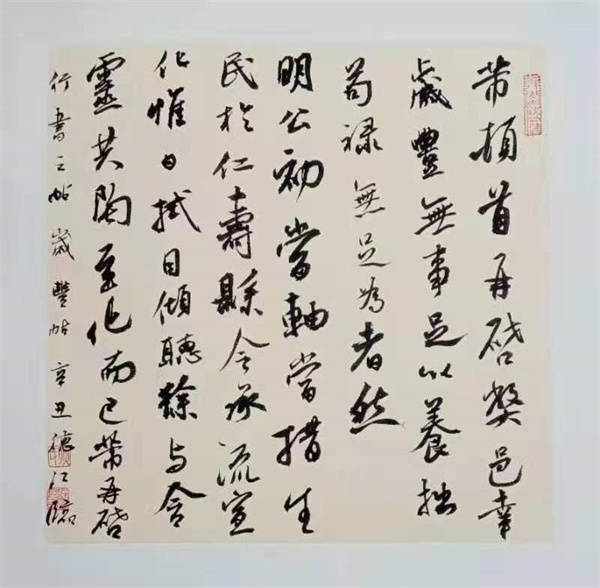 芾頓首再啓獘邑幸
歲豐無事足以養拙
苟禄無足為者然
明公初當軸當措生
民於仁壽縣令承流宣
化惟日拭目傾聽徐与含
靈共陶至化而已芾再啓
行書三帖歲豐帖辛丑德江臨